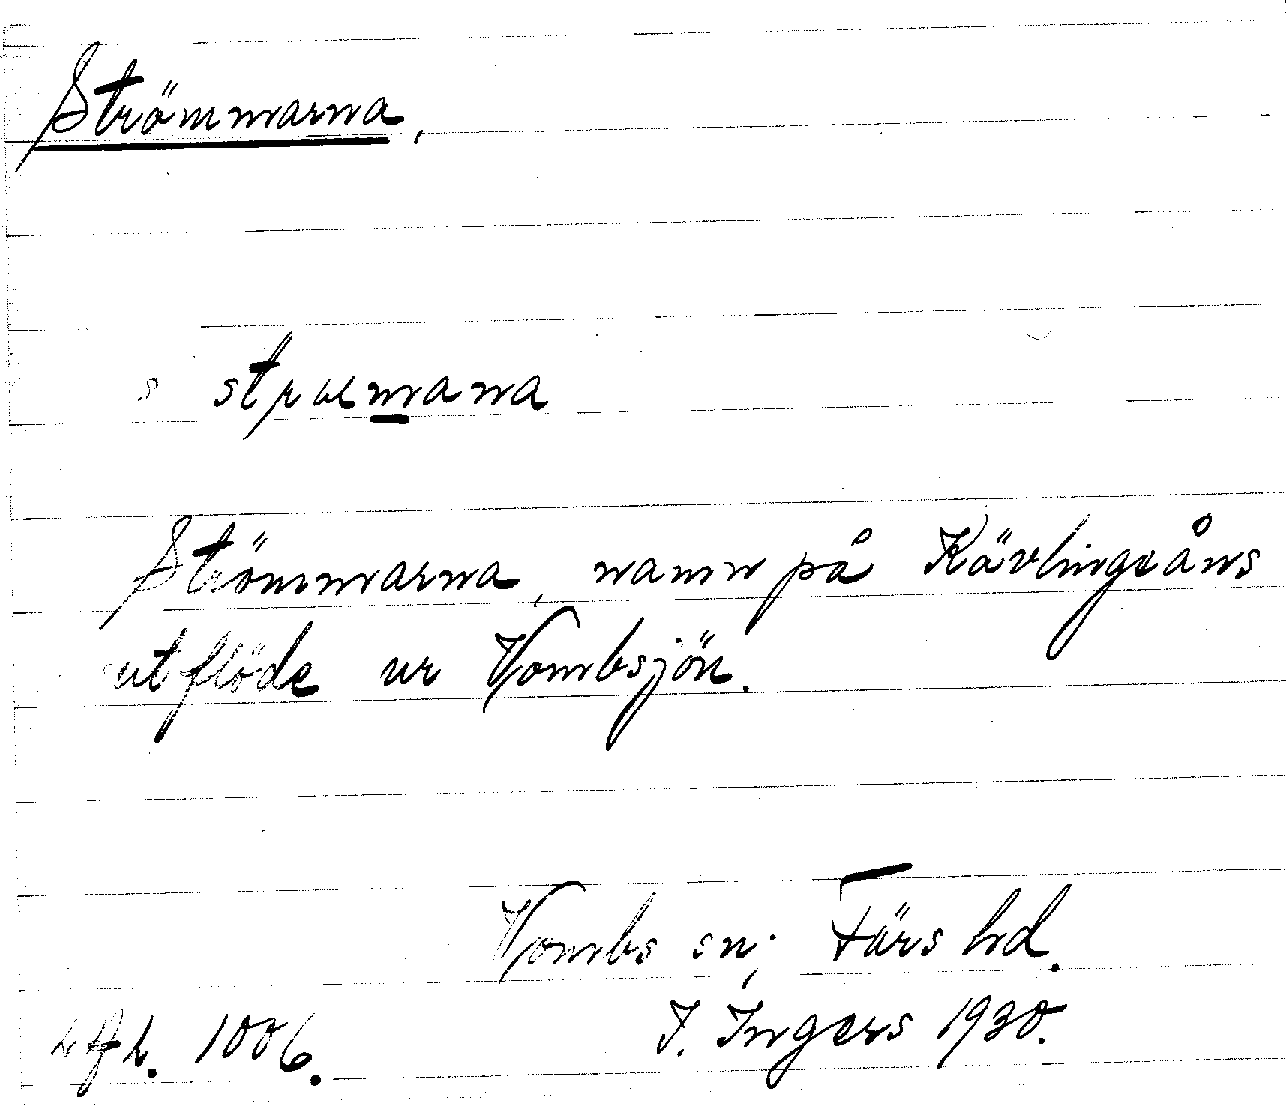 Strömmarna,
s strœmana
Strömmarna, namn på Kävlingeåns
utflöde ur Vombsjön.
Vombs sn; Färs hd.
1006. I. Ingers 1930.